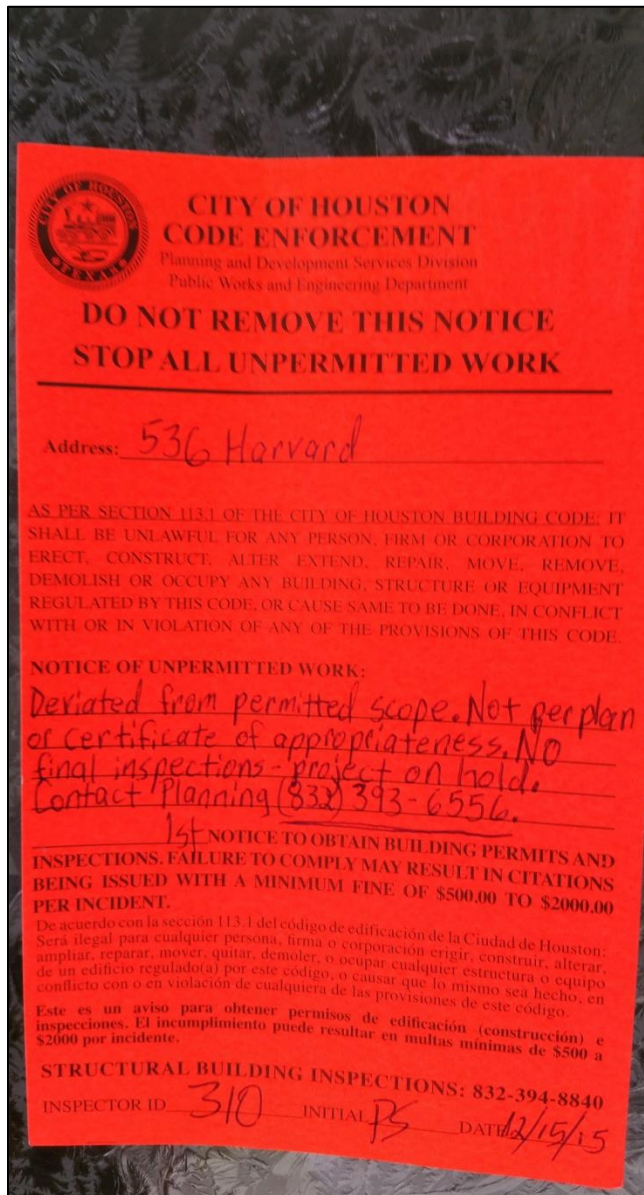 CITY OF HOUSTON
TEXAS
CITY OF HOUSTON
CODE ENFORCEMENT
Planning and Development Services Division
Public Works and Engineering Department
DO NOT REMOVE THIS NOTICE
STOP ALL UNPERMITTED WORK
Address: 536 Harvard
AS PER SECTION 113.1 OF THE CITY OF HOUSTON BUILDING CODE: IT
SHALL BE UNLAWFUL FOR ANY PERSON, FIRM OR CORPORATION TO
ERECT, CONSTRUCT, ALTER EXTEND, REPAIR, MOVE, REMOVE,
DEMOLISH OR OCCUPY ANY BUILDING, STRUCTURE OR EQUIPMENT
REGULATED BY THIS CODE, OR CAUSE SAME TO BE DONE, IN CONFLICT
WITH OR IN VIOLATION OF ANY OF THE PROVISIONS OF THIS CODE.
NOTICE OF UNPERMITTED WORK:
Deviated from permitted scope. Not per plan
or certificate of appropriateness. NO
final inspections - project on hold.
Contact Planning (832) 393-6556.
1st NOTICE TO OBTAIN BUILDING PERMITS AND
INSPECTIONS. FAILURE TO COMPLY MAY RESULT IN CITATIONS
BEING ISSUED WITH A MINIMUM FINE OF $500.00 TO $2000.00
PER INCIDENT.
De acuerdo con la sección 113.1 del código de edificación de la Ciudad de Houston:
Será ilegal para cualquier persona, firma o corporación erigir, construir, alterar,
ampliar, reparar, mover, quitar, demoler, o ocupar cualquier estructura o equipo
de un edificio regulado(a) por este código, o causar que lo mismo sea hecho, en
conflicto con o en violación de cualquiera de las provisiones de este código.
Este es un aviso para obtener permisos de edificación (construcción) e
inspecciones. El incumplimiento puede resultar en multas mínimas de $500 a
$2000 por incidente.
STRUCTURAL BUILDING INSPECTIONS: 832-394-8840
INSPECTOR ID 310 INITIAL PS DATE 12/15/15